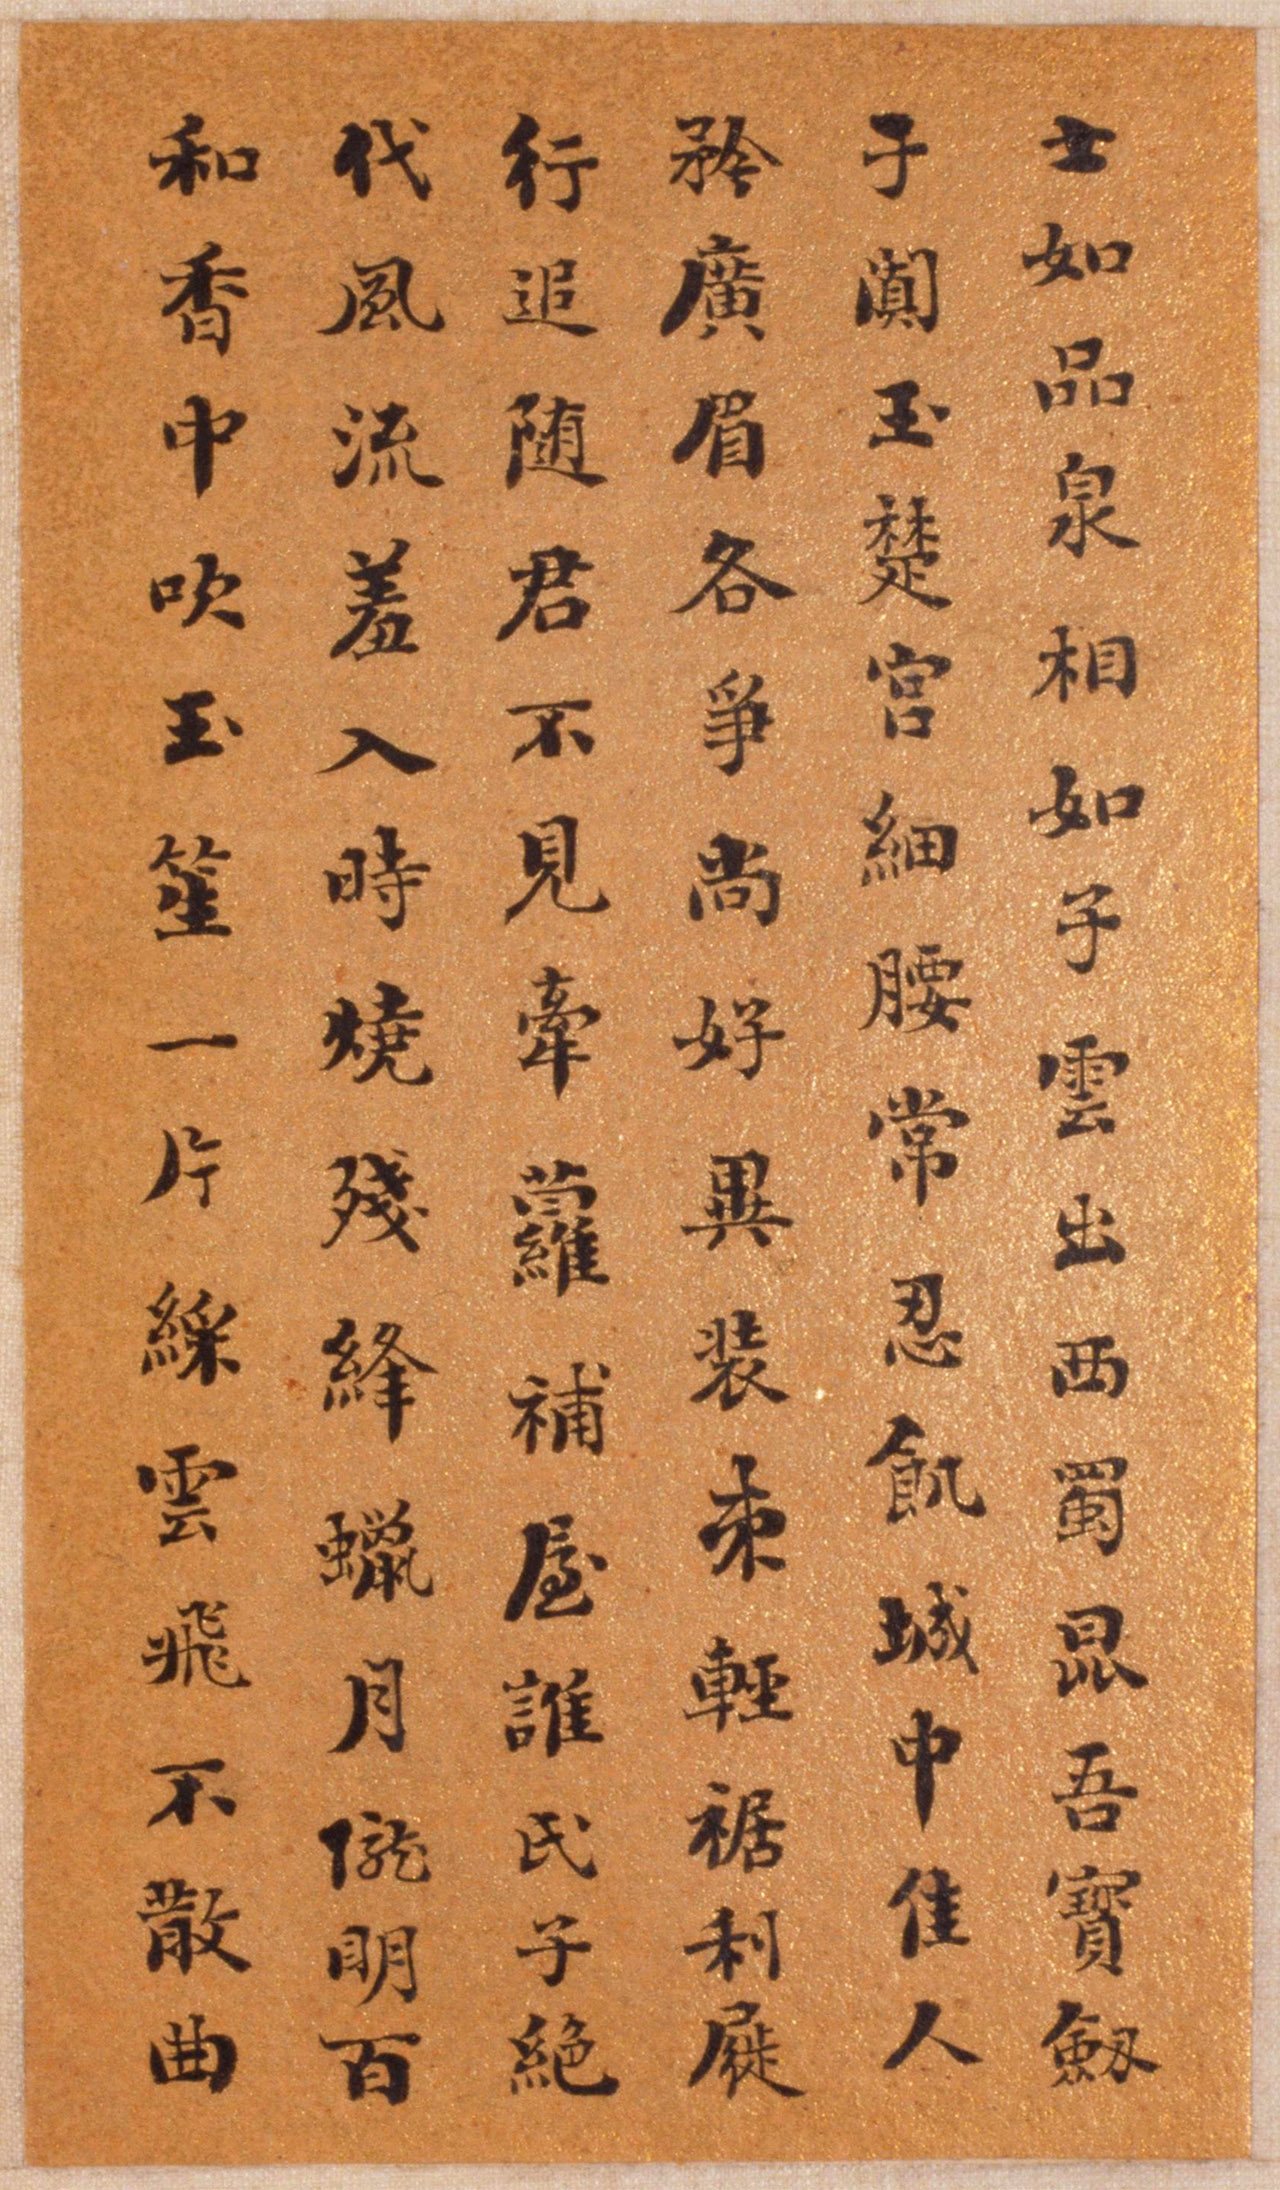 士如品泉相如子雲出西蜀昆吾寶劔
于闐玉楚宮細腰常忍飢城中佳人
矜廣眉各爭尚好異裝束輕裾利屣
行追随君不見牽蘿補屋誰氏子絶
代風流羞入時燒殘絳蠟月朧明百
和香中吹玉笙一片綵雲飛不散曲